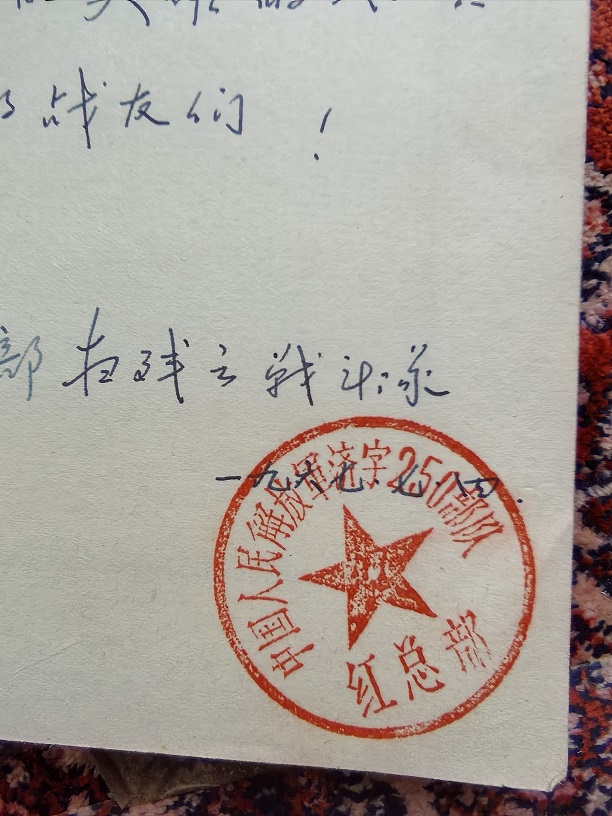 战友们！
部 扫残云战斗队
一九六七.七.八日.
中国人民解放军济字250部队
红总部